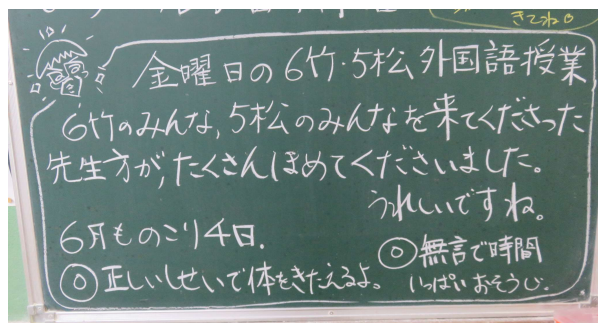 きてね。
金曜日の6竹・5松外国語授業
6竹のみんな，5松のみんなを来てくださった
先生方が，たくさんほめてくださいました。
うれしいですね。
6月ものこり4日．
◎正しいしせいで体をきたえるよ。
◎無言で時間
いっぱいおそうじ．